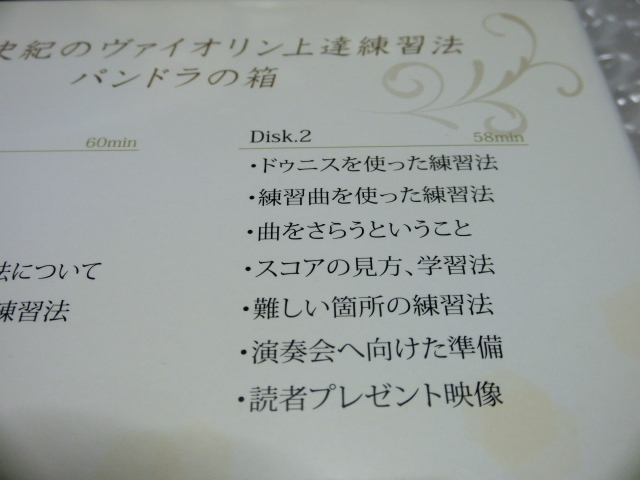 史紀のヴァイオリン上達練習法
パンドラの箱
60min
法について
練習法
Disk.2
58min
・ドゥニスを使った練習法
・練習曲を使った練習法
・曲をさらうということ
・スコアの見方、学習法
・難しい箇所の練習法
・演奏会へ向けた準備
・読者プレゼント映像